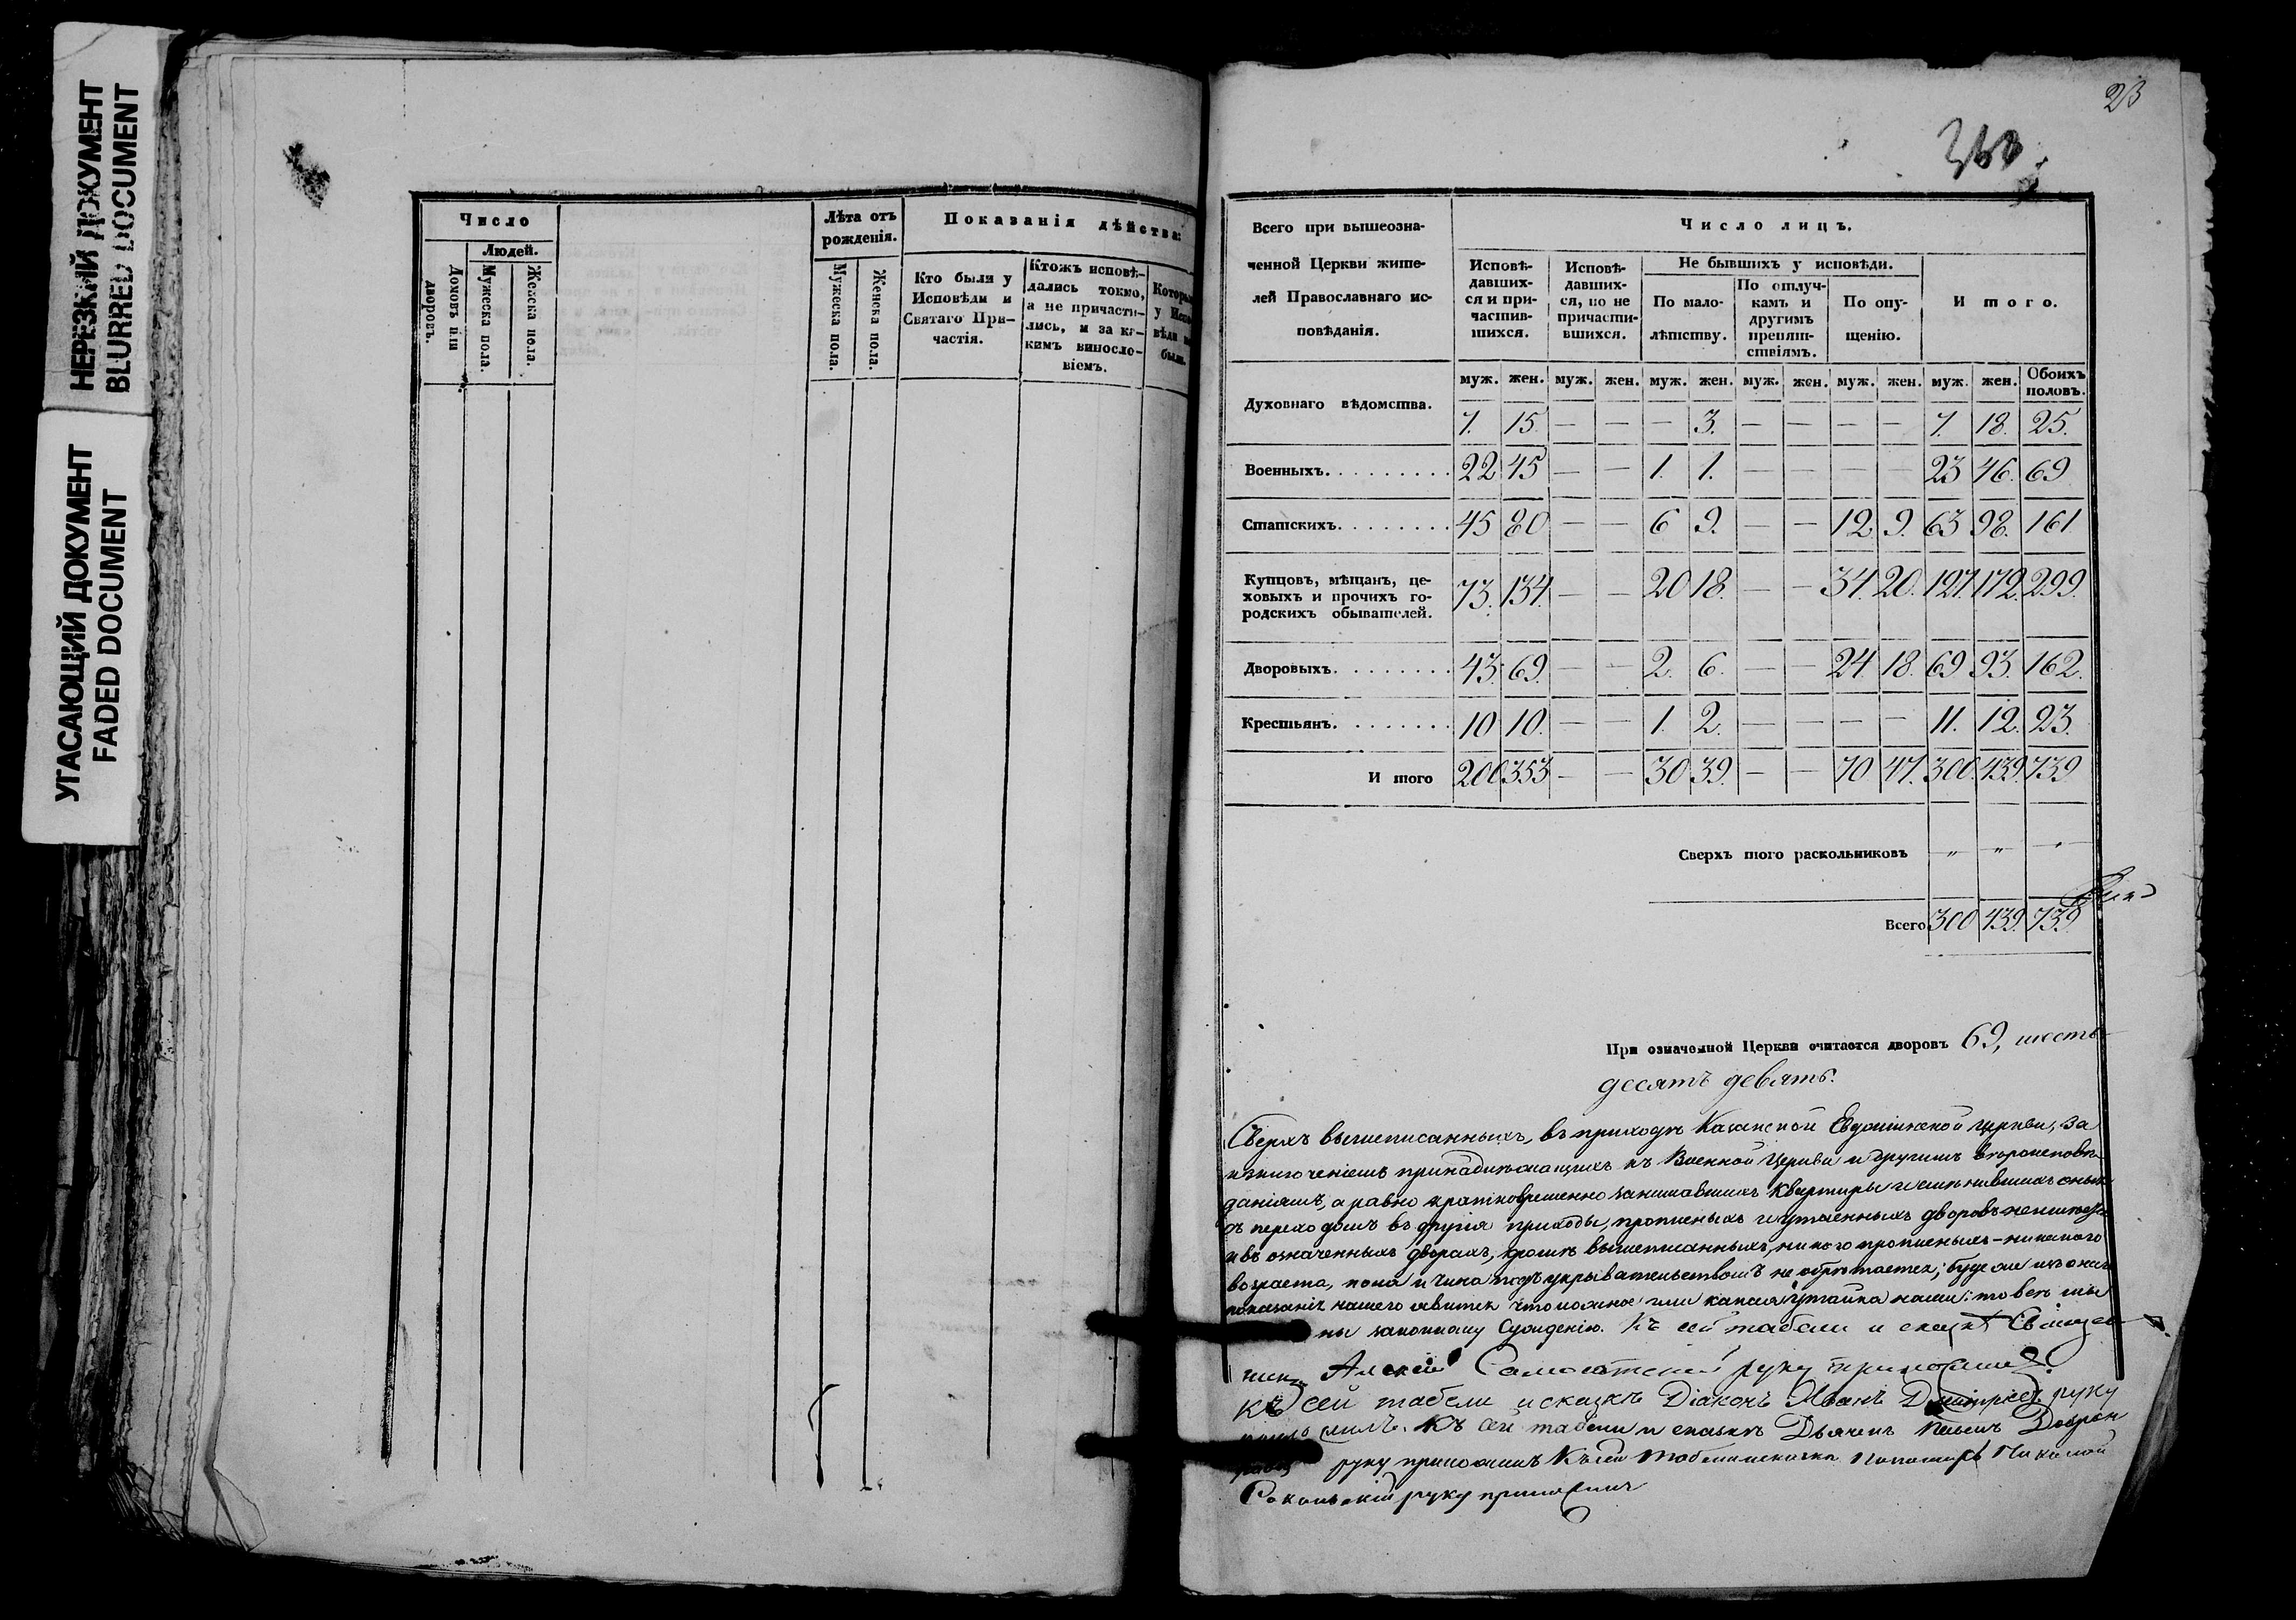 НЕРЕЗКИЙ ДОКУМЕНТ
BLURRED DOCUMENT
УГАСАЮЩИЙ ДОКУМЕНТ
FADED DOCUMENT
Число
Людей.
Домовъ или дворовъ.
Мужеска пола.
Женска пола.
Лѣта отъ рожденія.
Мужеска пола.
Женска пола.
Показанія дѣйства:
Кто были у Исповѣди и Святаго Причастія.
Ктожъ исповѣдались токмо, а не причастились, и за какимъ винословіемъ.
у
были.
23
Всего при вышеозначенной Церкви жителей Православнаго исповѣданія.
Число лицъ.
Исповѣдавшихся и причастившихся.
Исповѣдавшихся, но не причастившихся.
Не бывшихъ у исповѣди.
По малолѣтству.
По отлучкамъ и другимъ препятствіямъ.
По опущенію.
Итого.
муж. жен. муж. жен. муж. жен. муж. жен. муж. жен. муж. жен. Обоихъ половъ.
Духовнаго вѣдомства. 7. 15. — — — 3. — — — — 7. 18. 25.
Военныхъ. 22 45 — — 1. 1. — — — — 23 46. 69
Статскихъ. 45 80 — — 6 9. — — 12 9. 63 98. 161
Купцовъ, мѣщанъ, цеховыхъ и прочихъ городскихъ обывателей. 73. 134. — — 20 18. — — 34. 20. 127. 172. 299.
Дворовыхъ. 43. 69. — — 2. 6. — — 24. 18. 69 93. 162.
Крестьянъ. 10 10. — — 1. 2. — — — — 11. 12. 23.
Итого 200 353 — — 30 39. — — 70 47. 300. 439. 739
Сверхъ того раскольниковъ „ „ „
Всего 300 439. 739.
При означенной Церкви считается дворовъ 69, шесть
десятъ девять.
Сверхъ вышеписанныхъ, въ приходѣ Казанской Евдокіинской церкви, за
исключеніемъ принадлежащихъ къ Военной Церкви и другимъ
даніямъ, а равно кратковременно занимавшихъ квартиры
переходомъ въ другія приходы, прописныхъ и утаенныхъ дворовъ
и въ означенныхъ дворахъ, кромѣ вышеписанныхъ, никого прописныхъ — никакого
возраста, пола и чина подъ укрывательствомъ не обрѣтается; буде же
показаніи нашего явится что ложное или какая утайка нами: то всѣ мы
законному сужденію. Къ сей табели и сказкѣ
Алексій руку приложилъ.
Къ сей табели и сказкѣ Діаконъ Иванъ Димитріевъ руку
приложилъ. Къ сей табели и сказкѣ Дьячекъ
руку приложилъ Къ сей табели и сказкѣ Пономарь Николай
Сокольскій руку приложилъ